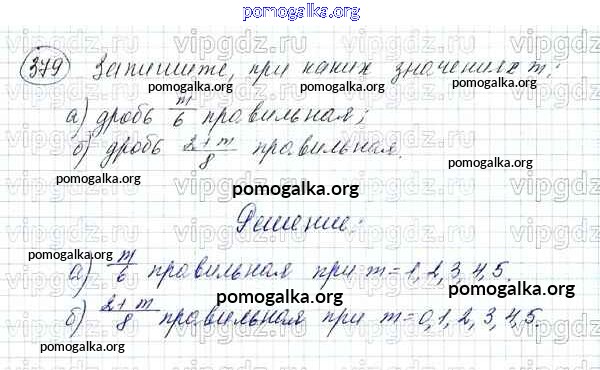 pomogalka.org
379 Запишите, при каких значениях m:
а) дробь m/6 правильная;
pomogalka.org
б) дробь 2+m/8 правильная.
pomogalka.org
pomogalka.org
Решение:
pomogalka.org
а) m/6 правильная при m = 1, 2, 3, 4, 5.
pomogalka.org
pomogalka.org
б) 2+m/8 правильная при m = 0, 1, 2, 3, 4, 5.
pomogalka.org
pomogalka.org